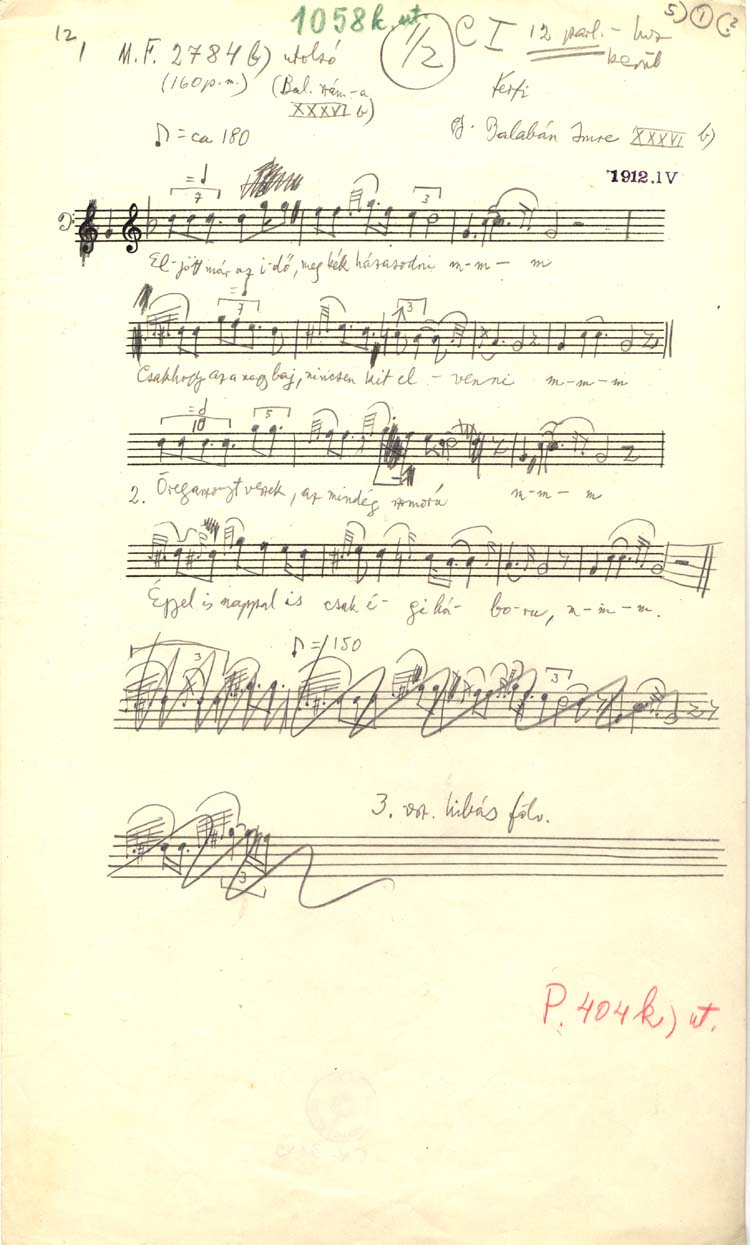 1058k. ut.
5) 1 (2
12
1
M.F. 2784 b) utolsó
1/2
C I 12 parl. -
(160 p.m.)
(Bal. szám-a
XXXVI b)
Kerfi
♪ = ca 180
Gy. Balabán Imre XXXVI b)
1912.IV
= 7
3
El-jött már az i-dő, meg kék házasodni m-m- m
7
3
Csakhogy az a nagy baj, nincsen kit el - venni m-m-m
10
5
2. Öregasszonyt veszek, az mindég szomorú m-m-m
Éjjel is nappal is csak é- gi há- bo-ru, m-m-m.
♪ = 150
3
3
3. vsz. hibás fölv.
3
P. 404k) ut.